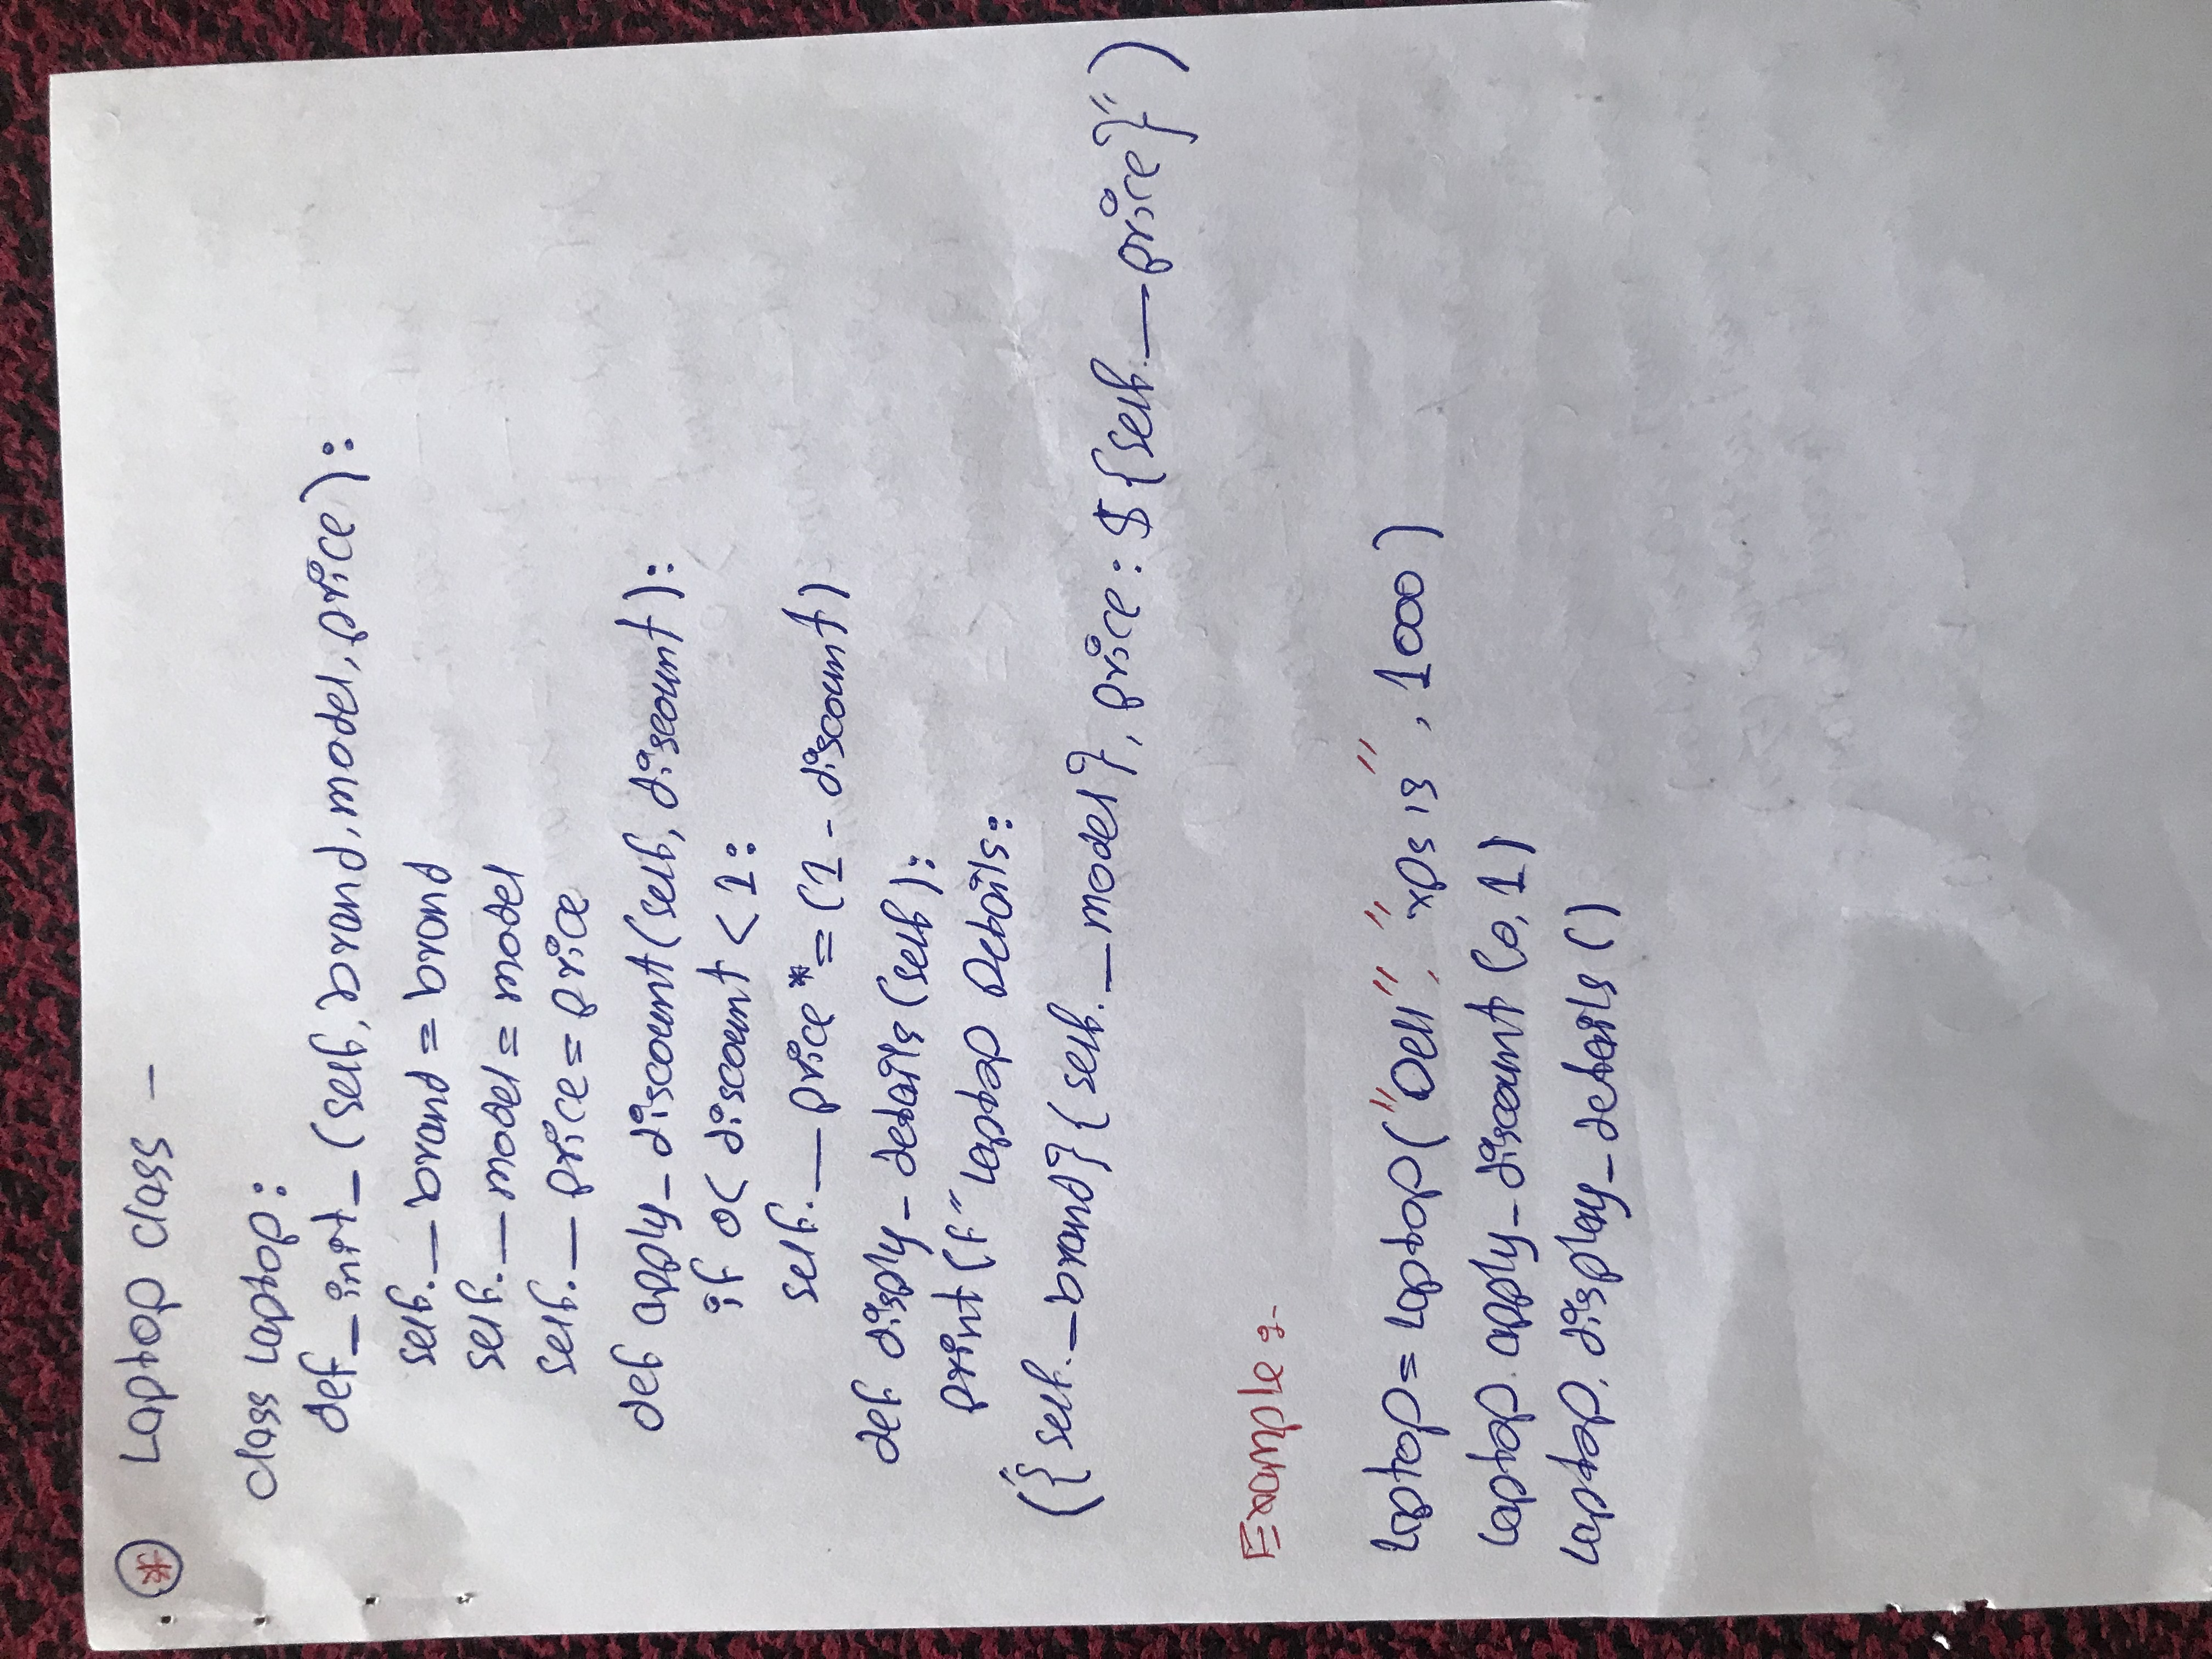 * Laptop class -
class Laptop:
def _ init _ (self, brand, model, price):
self. _ brand = brand
self. _ model = model
self. _ price = price
def apply_discount(self, discount):
if 0< discount < 1:
self. _ price *= (1 - discount)
def disply_details (self):
print (f" Laptop Details:
("{self. _brand} {self. _model}, price: ${self. _price}")
Example :-
laptop = Laptop ("Dell", "xps 13", 1000)
Laptop. apply_discount (0,1)
Laptop. display_details ()